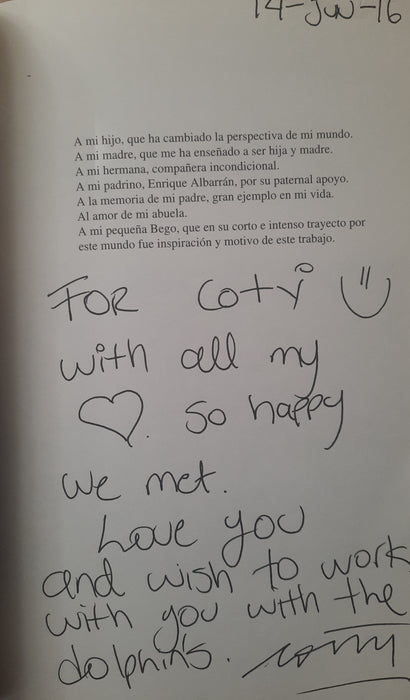 14-JUN-16
A mi hijo, que ha cambiado la perspectiva de mi mundo.
A mi madre, que me ha enseñado a ser hija y madre.
A mi hermana, compañera incondicional.
A mi padrino, Enrique Albarrán, por su paternal apoyo.
A la memoria de mi padre, gran ejemplo en mi vida.
Al amor de mi abuela.
A mi pequeña Bego, que en su corto e intenso trayecto por
este mundo fue inspiración y motivo de este trabajo.
FOR Coty
with all my
so happy
we met.
Love you
and wish to work
with you with the
dolphins.